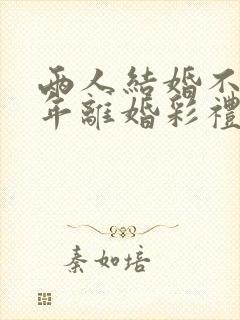 兩人結婚不
年離婚彩禮
秦如培